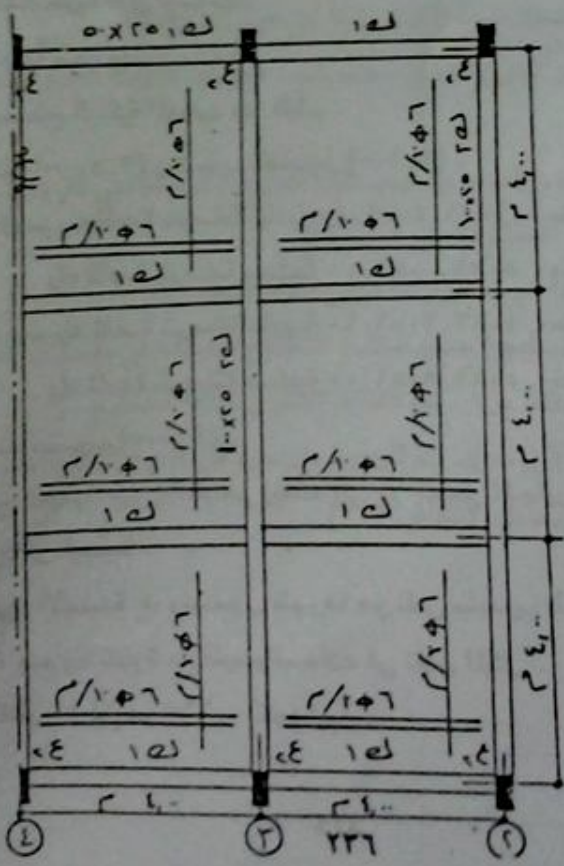 ك١
ك١ ٢٥×٥٠
ع
ع
ع
٦Φ١٠/م
٦Φ١٠/م
ك٢ ٢٥×١٠٠
٤,٠٠ م
٦Φ١٠/م
٦Φ١٠/م
ك١
ك١
٦Φ١٠/م
٦Φ١٠/م
ك٢ ٢٥×١٠٠
٤,٠٠ م
٦Φ١٠/م
٦Φ١٠/م
ك١
ك١
٦Φ١٠/م
٦Φ١٠/م
٤,٠٠ م
٦Φ١٠/م
٦Φ١٠/م
ع
ك١
ع
ك١
ع
٤,٠٠ م
٤,٠٠ م
٢
٣
٤
٢٣٦